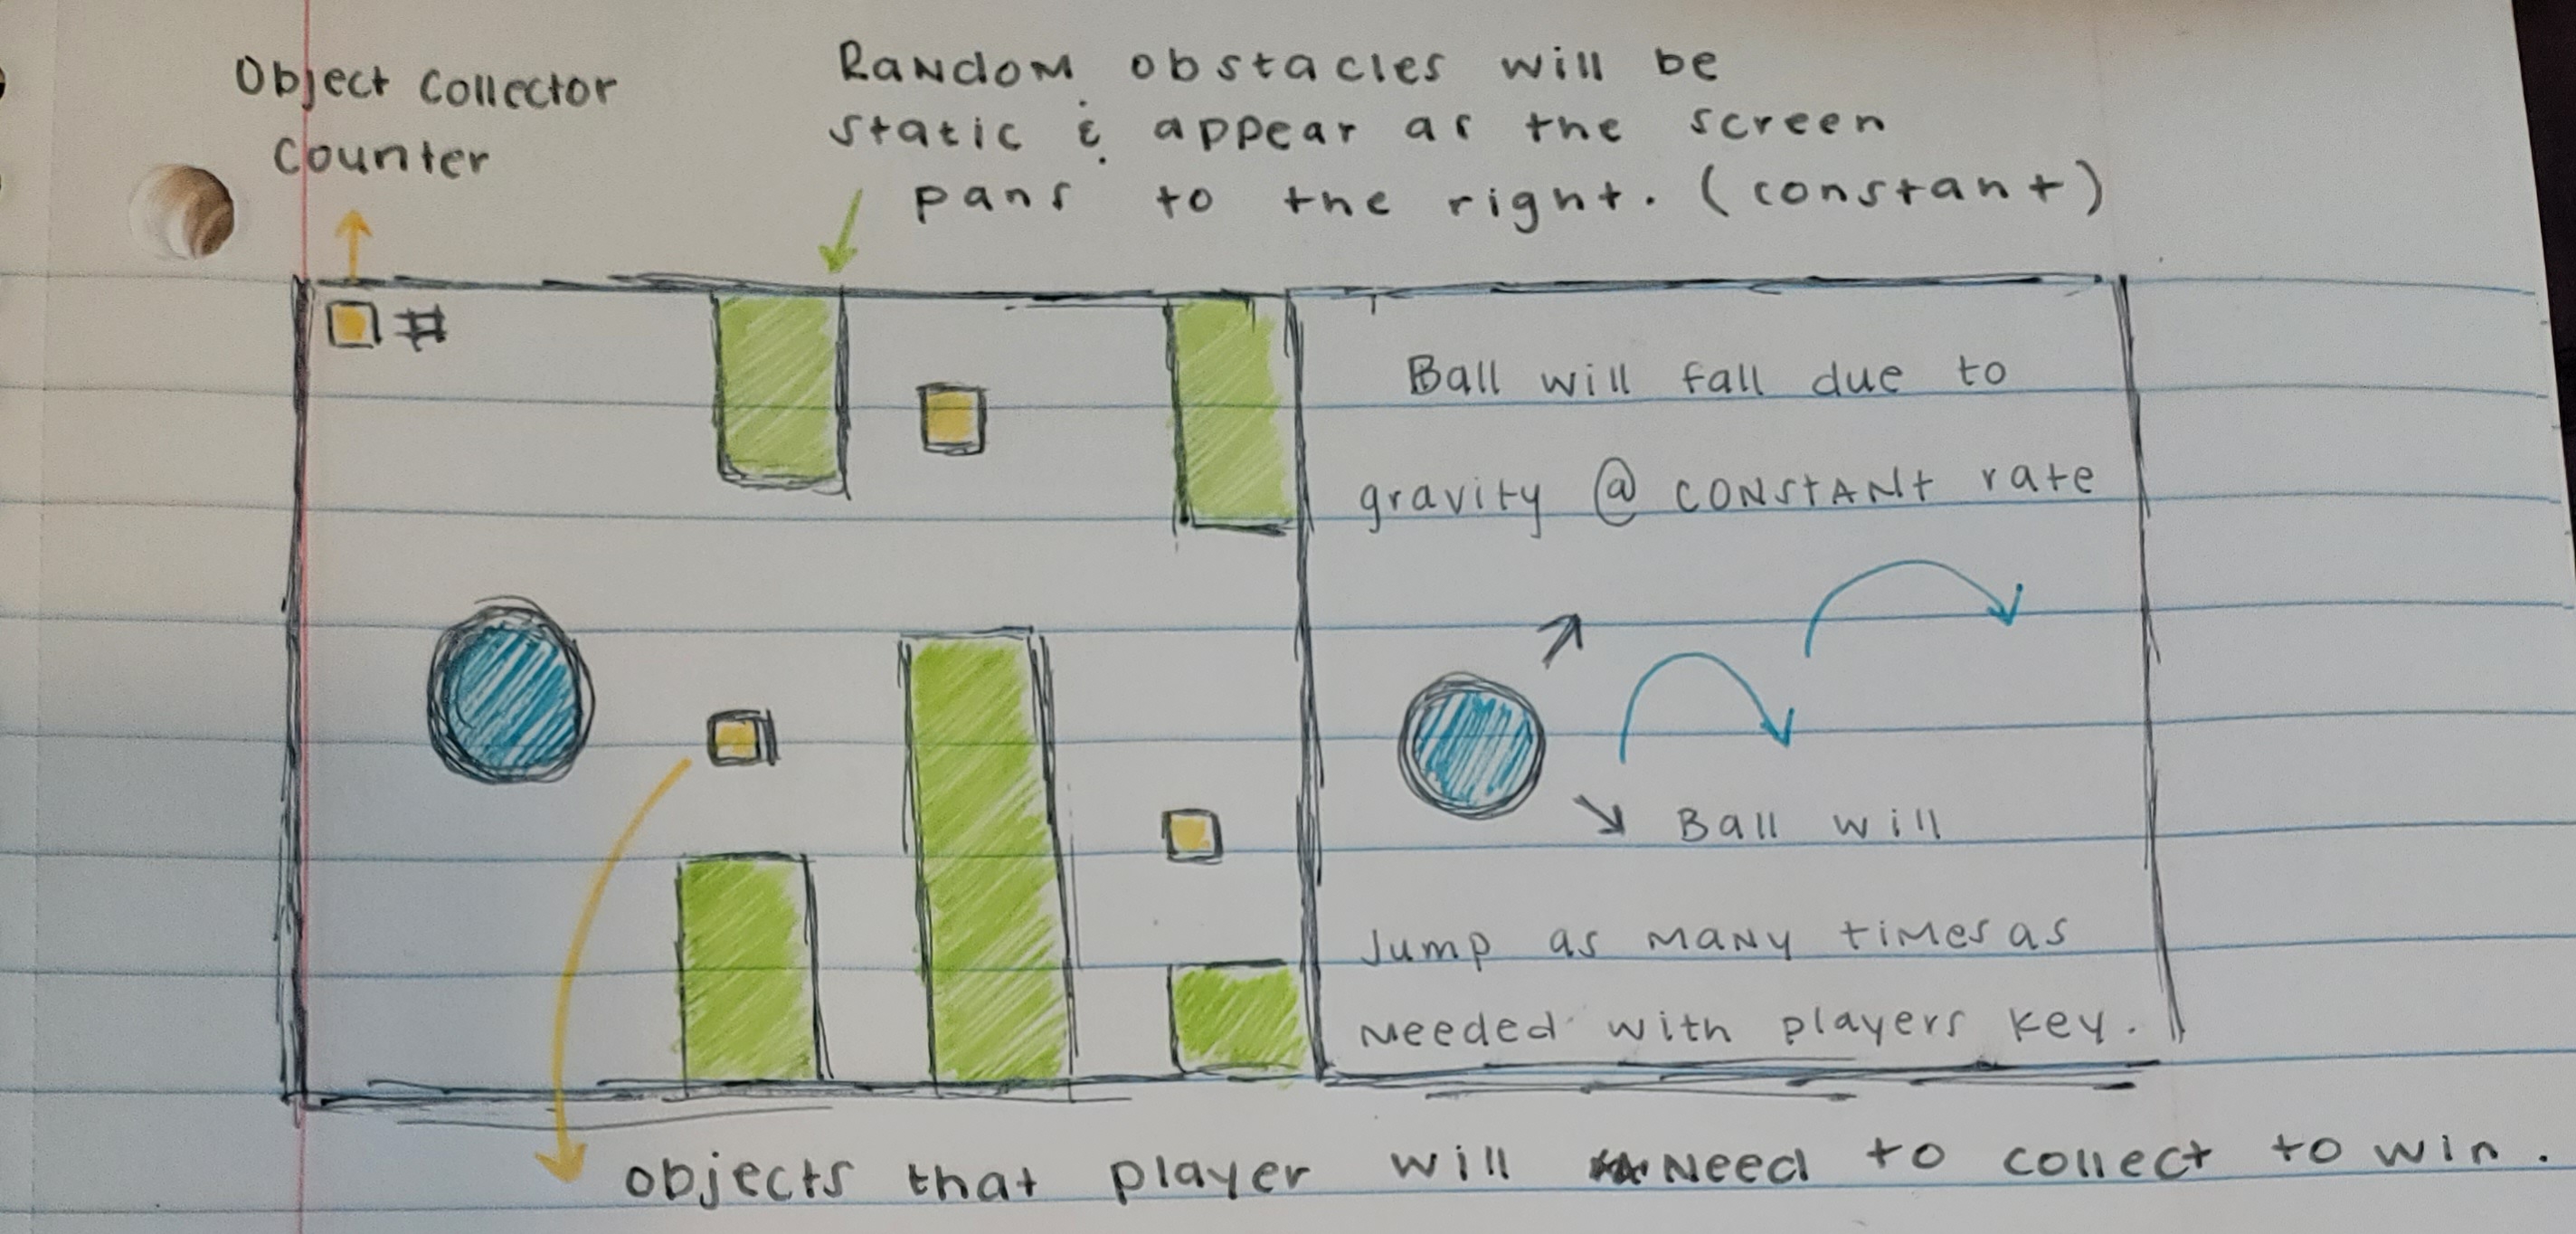 Object Collector
Counter
Random obstacles will be
static & appear as the screen
pans to the right. (constant)
#
Ball will fall due to
gravity @ constant rate
Ball will
Jump as many times as
needed with players key.
objects that player will need to collect to win.